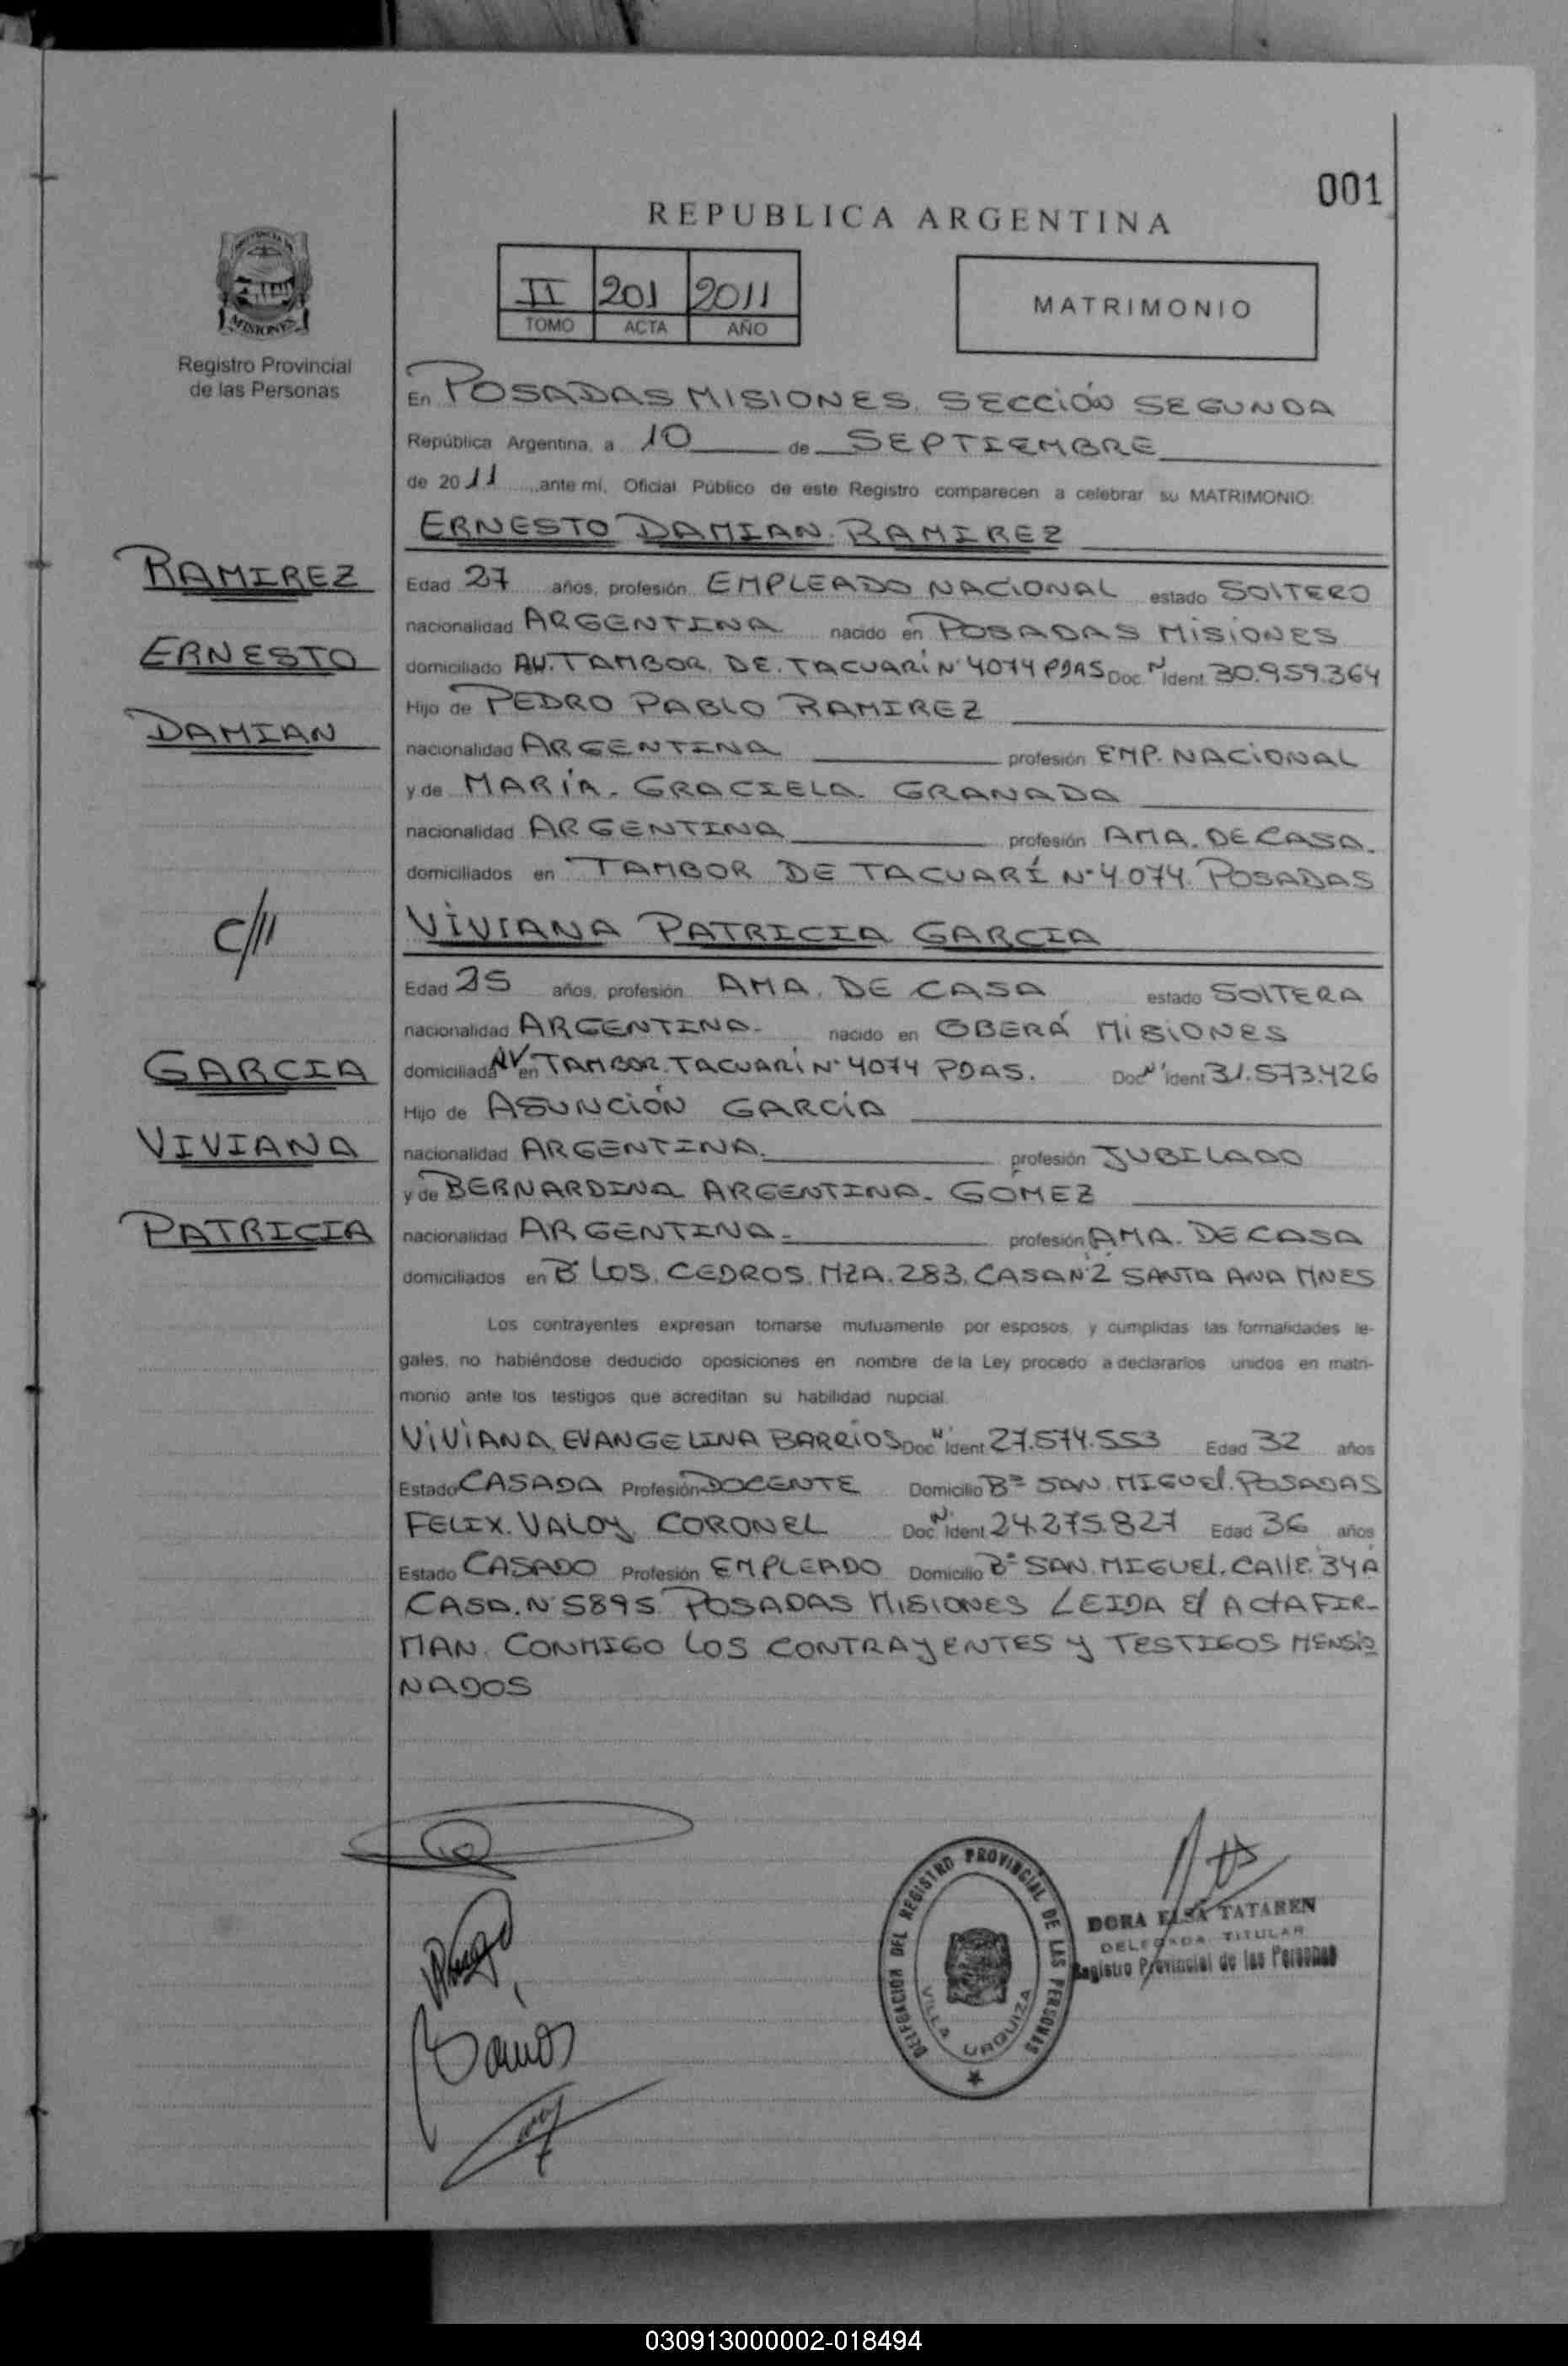 001
REPUBLICA ARGENTINA
II 201 2011
TOMO ACTA AÑO
MATRIMONIO
MISIONES
Registro Provincial
de las Personas
En POSADAS MISIONES. SECCIÓN SEGUNDA
República Argentina, a 10 de SEPTIEMBRE
de 20 11 ante mí, Oficial Público de este Registro comparecen a celebrar su MATRIMONIO:
ERNESTO DAMIAN. RAMIREZ
RAMIREZ
Edad 27 años, profesión EMPLEADO NACIONAL estado SOLTERO
nacionalidad ARGENTINA nacido en POSADAS MISIONES
ERNESTO
domiciliado AV. TAMBOR. DE. TACUARÍ Nº 4074 PDAS Doc. Nº Ident. 30.959.364
Hijo de PEDRO PABLO RAMIREZ
DAMIAN
nacionalidad ARGENTINA profesión EMP. NACIONAL
y de MARÍA. GRACIELA. GRANADA
nacionalidad ARGENTINA profesión AMA. DE CASA.
domiciliados en TAMBOR DE TACUARÍ Nº 4074. POSADAS
C/ll
VIVIANA PATRICIA GARCIA
Edad 25 años, profesión AMA. DE CASA estado SOLTERA
nacionalidad ARGENTINA. nacido en OBERÁ MISIONES
GARCIA
domiciliada en AV. TAMBOR. TACUARÍ Nº 4074 PDAS. Doc. Nº Ident 31.573.426
Hijo de ASUNCIÓN GARCÍA
VIVIANA
nacionalidad ARGENTINA. profesión JUBILADO
y de BERNARDINA ARGENTINA. GOMEZ
PATRICIA
nacionalidad ARGENTINA. profesión AMA. DE CASA
domiciliados en Bº LOS. CEDROS. MZA. 283. CASA Nº 2 SANTA ANA MNES
Los contrayentes expresan tomarse mutuamente por esposos, y cumplidas las formalidades le-
gales, no habiéndose deducido oposiciones en nombre de la Ley procedo a declararlos unidos en matri-
monio ante los testigos que acreditan su habilidad nupcial.
VIVIANA EVANGELINA BARRIOS Doc. Nº Ident 27.574.553 Edad 32 años
Estado CASADA Profesión DOCENTE Domicilio Bº SAN. MIGUEL. POSADAS
FELIX. VALOY CORONEL Doc. Nº Ident 24.275.827 Edad 36 años
Estado CASADO Profesión EMPLEADO Domicilio Bº SAN. MIGUEL. CALLE. 34 A
CASA. Nº 5895. POSADAS MISIONES LEIDA El ACtA FIR-
MAN. CONMIGO LOS CONTRAYENTES Y TESTIGOS MENSIO
NADOS
DELEGACION DEL REGISTRO PROVINCIAL DE LAS PERSONAS
VILLA URQUIZA
DORA ELSA TATAREN
DELEGADA TITULAR
Registro Provincial de las Personas
030913000002-018494